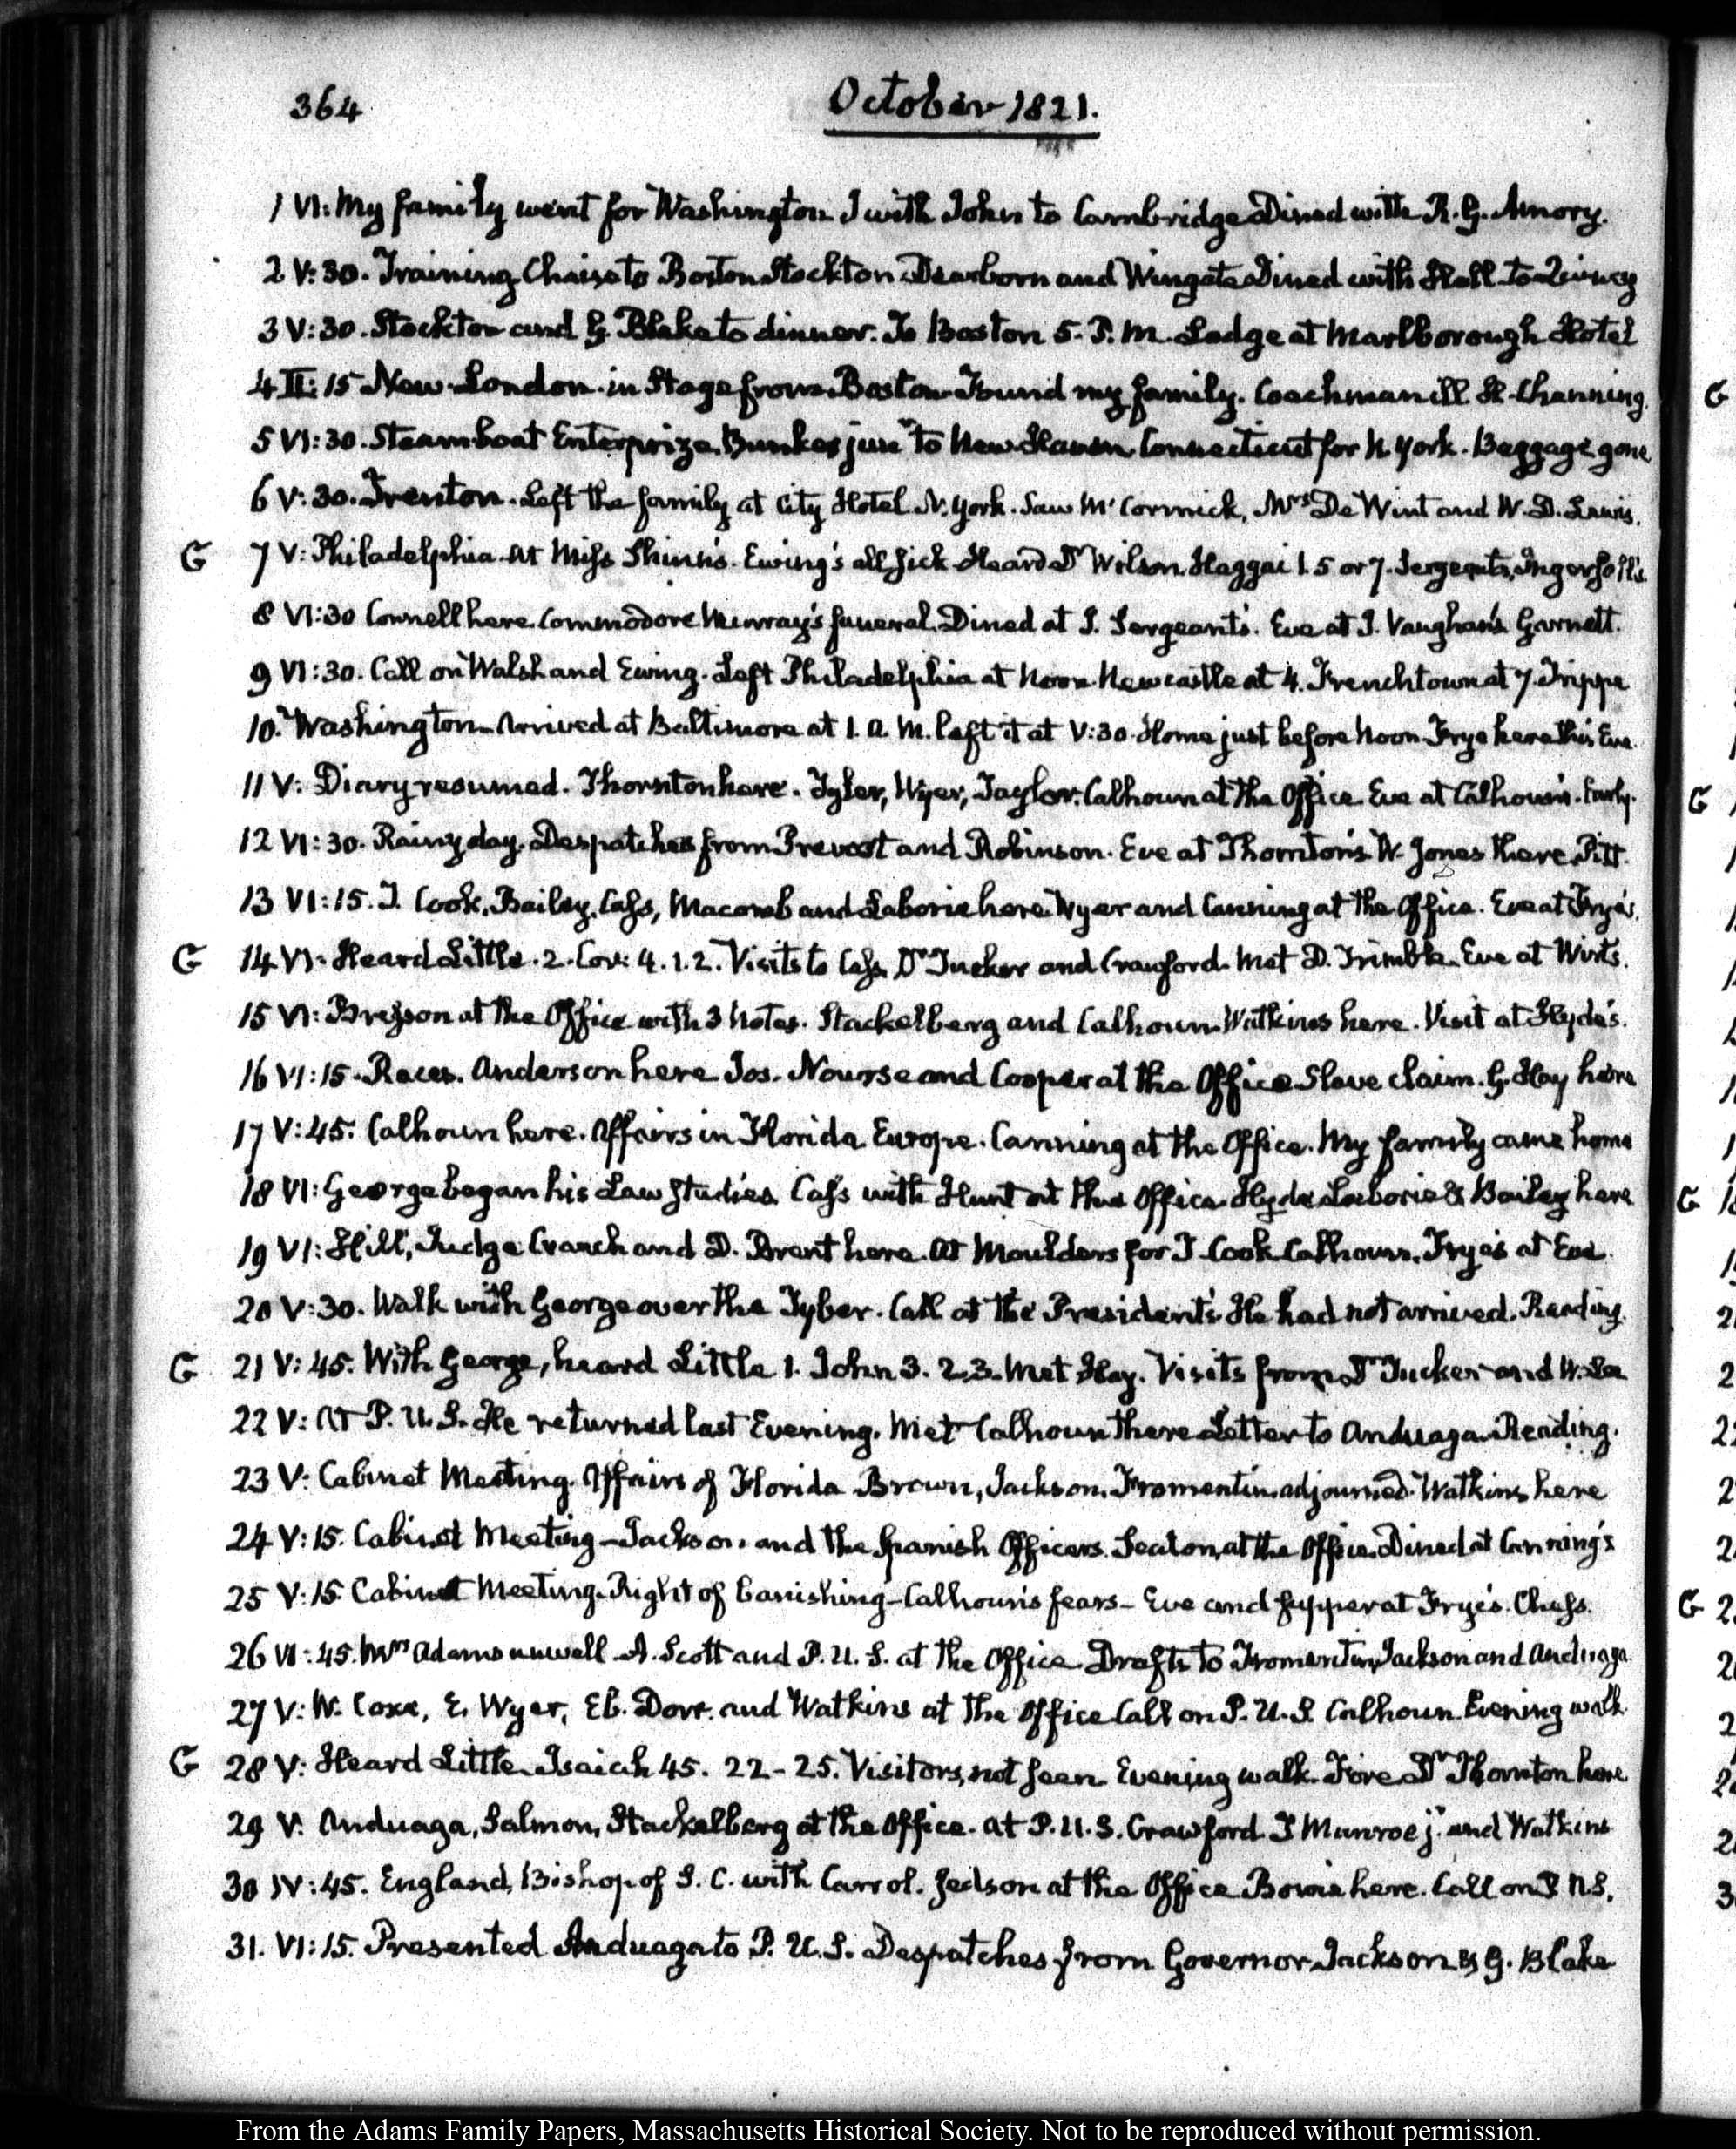 364
October 1821.
1 VI: My family went for Washington I with John to Cambridge Dined with R. G. Amory.
2 V:30. Training Chaise to Boston Stockton Dearborn and Wingate Dined with Hall To Quincy
3 V:30. Stockton and G Blake to dinner. To Boston 5. P.M. Lodge at Marlborough Hotel
4 II:15 New-London in Stage from Boston Found my family. Coachman ill. H. Channing.
5 VI:30. Steamboat Enterprize. Bunker junr to New-Haven Connecticut for N York. Baggage gone
6 V:30. Trenton. Left the family at City Hotel N. York. Saw McCormick, Mrs De Wint and W. D. Lewis.
G 7 V: Philadelphia at Miss Shinn's. Ewing's all sick Heard Dr Wilson Haggai 1. 5 or 7. Sergeants, Ingersoll's
8 VI:30 Connell here. Commodore Murray's funeral. Dined at J. Sergeant's. Eve at J. Vaughan's Garnett.
9 VI:30. Call on Walsh and Ewing. Left Philadelphia at Noon Newcastle at 4. Frenchtown at 7. Trippe
10. Washington Arrived at Baltimore at 1. A. M. left it at V:30. Home just before Noon Frye here this Eve.
11 V: Diary resumed. Thornton here. Tyler, Wyer, Taylor. Calhoun at the Office. Eve at Calhoun's. Early.
12 VI:30. Rainy day. Despatches from Prevost and Robinson. Eve at Thornton's W. Jones there. Pitt.
13 VI:15. J. Cook, Bailey, Cass, Macomb and Laborie here. Wyer and Canning at the Office. Eve at Frye's.
G 14 VI. Heard Little. 2. Cor: 4. 1. 2. Visits to Cass Dr Tucker and Crawford. Met D. Trimble. Eve at Wirts.
15 VI: Bresson at the Office with 3 Notes. Stackelberg and Calhoun Watkins here. Visit at Hyde's.
16 VI:15. Races. Anderson here Jos. Nourse and Cooper at the Office Slave claim. G. Hay here
17 V:45. Calhoun here. Affairs in Florida Europe. Canning at the Office. My family came home
18 VI: George began his Law Studies. Cass with Hunt at the Office Hyde Laborie & Bailey here
19 VI: Hill, Judge Cranch and D. Brent here. At Moulders for J. Cook Calhoun. Frye's at Eve.
20 V:30. Walk with George over the Tyber. Call at the President's. He had not arrived. Reading.
G 21 V:45. With George, heard Little 1. John 3. 2.3. Met Hay. Visits from Dr Tucker and W. Lee
22 V: At P. U. S. He returned last Evening. Met Calhoun there Letter to Anduaga. Reading.
23 V: Cabinet Meeting. Affairs of Florida Brown, Jackson, Fromentin. adjourned. Watkins here
24 V:15. Cabinet Meeting—Jackson and the Spanish Officers. Seaton, at the Office. Dined at Canning's
25 V:15. Cabinet Meeting. Right of banishing—Calhoun's fears—Eve and supper at Frye's. Chess.
26 VI:45. Mrs Adams unwell. A. Scott and P. U. S. at the Office Drafts to Fromentin, Jackson and Anduaga.
27 V: W. Coxe, E. Wyer, Eb. Dorr. and Watkins at the Office Call on P. U. S. Calhoun. Evening walk
G 28 V: Heard Little Isaiah 45. 22-25. Visitors, not seen. Evening walk. Fire Dr Thornton here
29 V. Anduaga, Salmon, Stackelberg at the Office. At P. U. S. Crawford. J Munroe jr. and Watkins
30 IV:45. England, Bishop of S. C. with Carrol. Judson at the Office Bowie here. Call on
31. VI:15. Presented Anduaga to P. U. S. Despatches from Governor Jackson & G. Blake
From the Adams Family Papers, Massachusetts Historical Society. Not to be reproduced without permission.